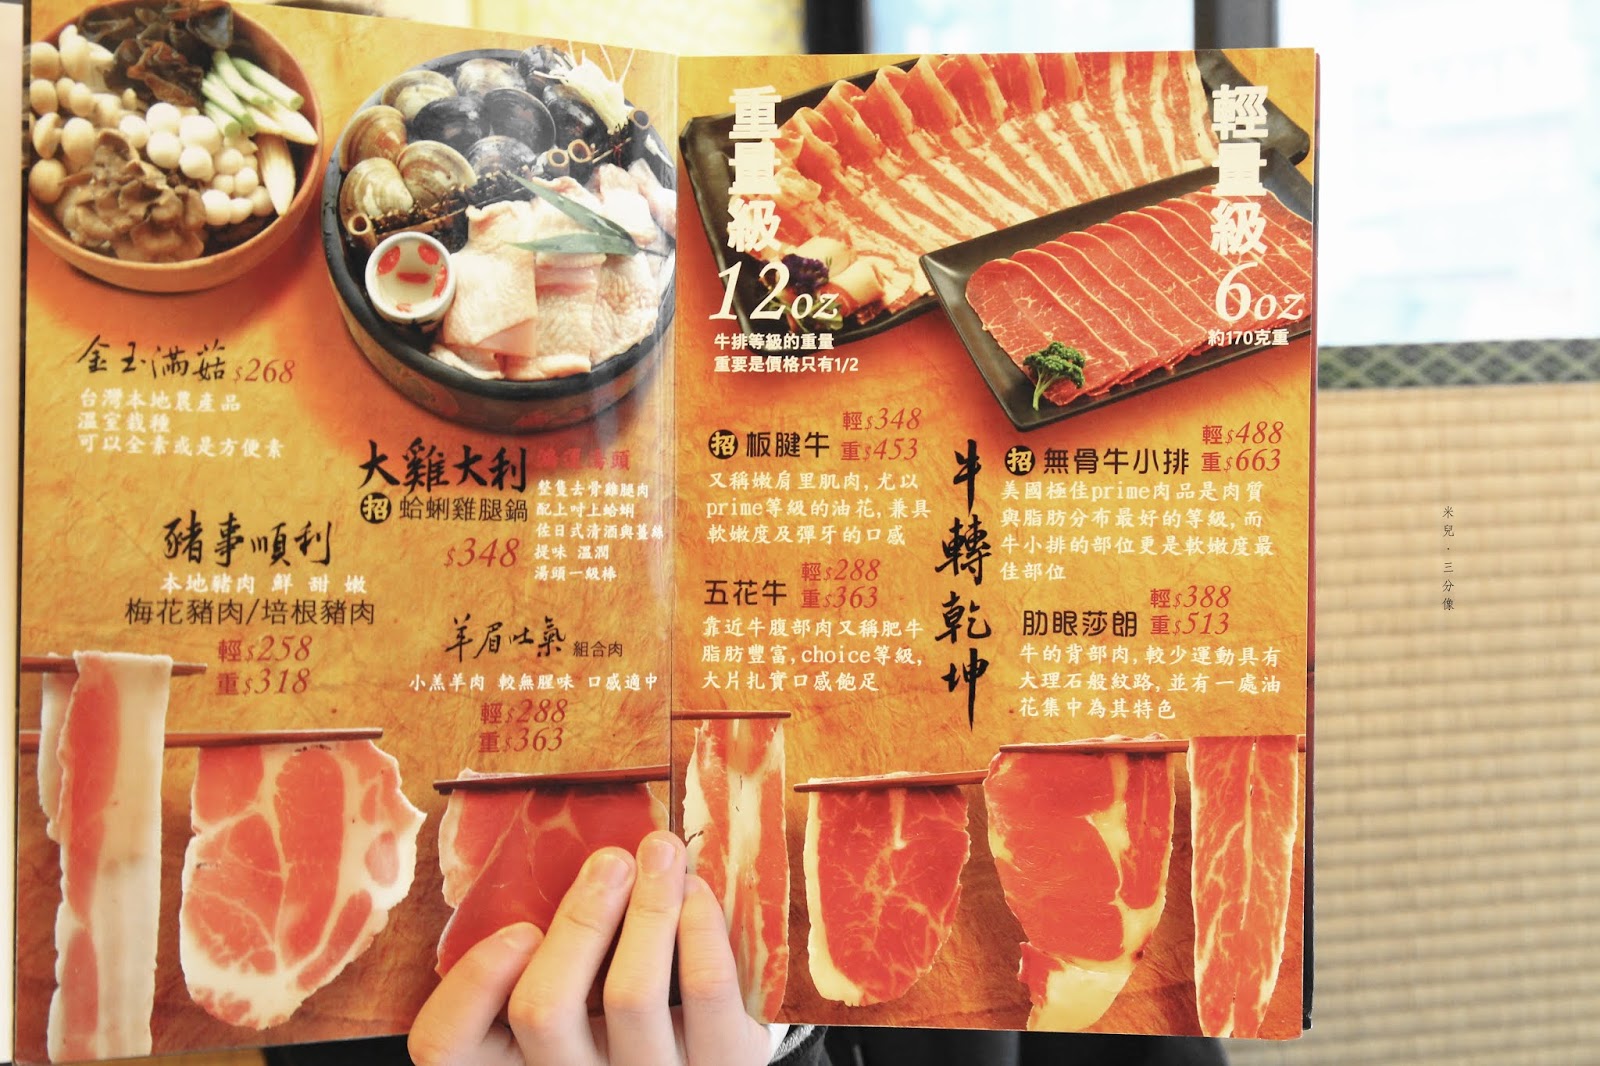 金玉滿菇 $268
台灣本地農產品
溫室栽種
可以全素或是方便素
大雞大利
招 蛤蜊雞腿鍋
$348
整隻去骨雞腿肉
配上吋上蛤蜊
佐日式清酒與薑絲
提味 溫潤
湯頭一級棒
豬事順利
本地豬肉 鮮 甜 嫩
梅花豬肉/培根豬肉
輕$258
重$318
羊眉吐氣 組合肉
小羔羊肉 較無腥味 口感適中
輕$288
重$363
重量級
12oz
牛排等級的重量
重要是價格只有1/2
輕量級
6oz
約170克重
牛轉乾坤
招 板腱牛 輕$348
重$453
又稱嫩肩里肌肉,尤以
prime等級的油花,兼具
軟嫩度及彈牙的口感
五花牛 輕$288
重$363
靠近牛腹部肉又稱肥牛
脂肪豐富,choice等級,
大片扎實口感飽足
招 無骨牛小排 輕$488
重$663
美國極佳prime肉品是肉質
與脂肪分布最好的等級,而
牛小排的部位更是軟嫩度最
佳部位
肋眼莎朗 輕$388
重$513
牛的背部肉,較少運動具有
大理石般紋路,並有一處油
花集中為其特色
米兒·三分像